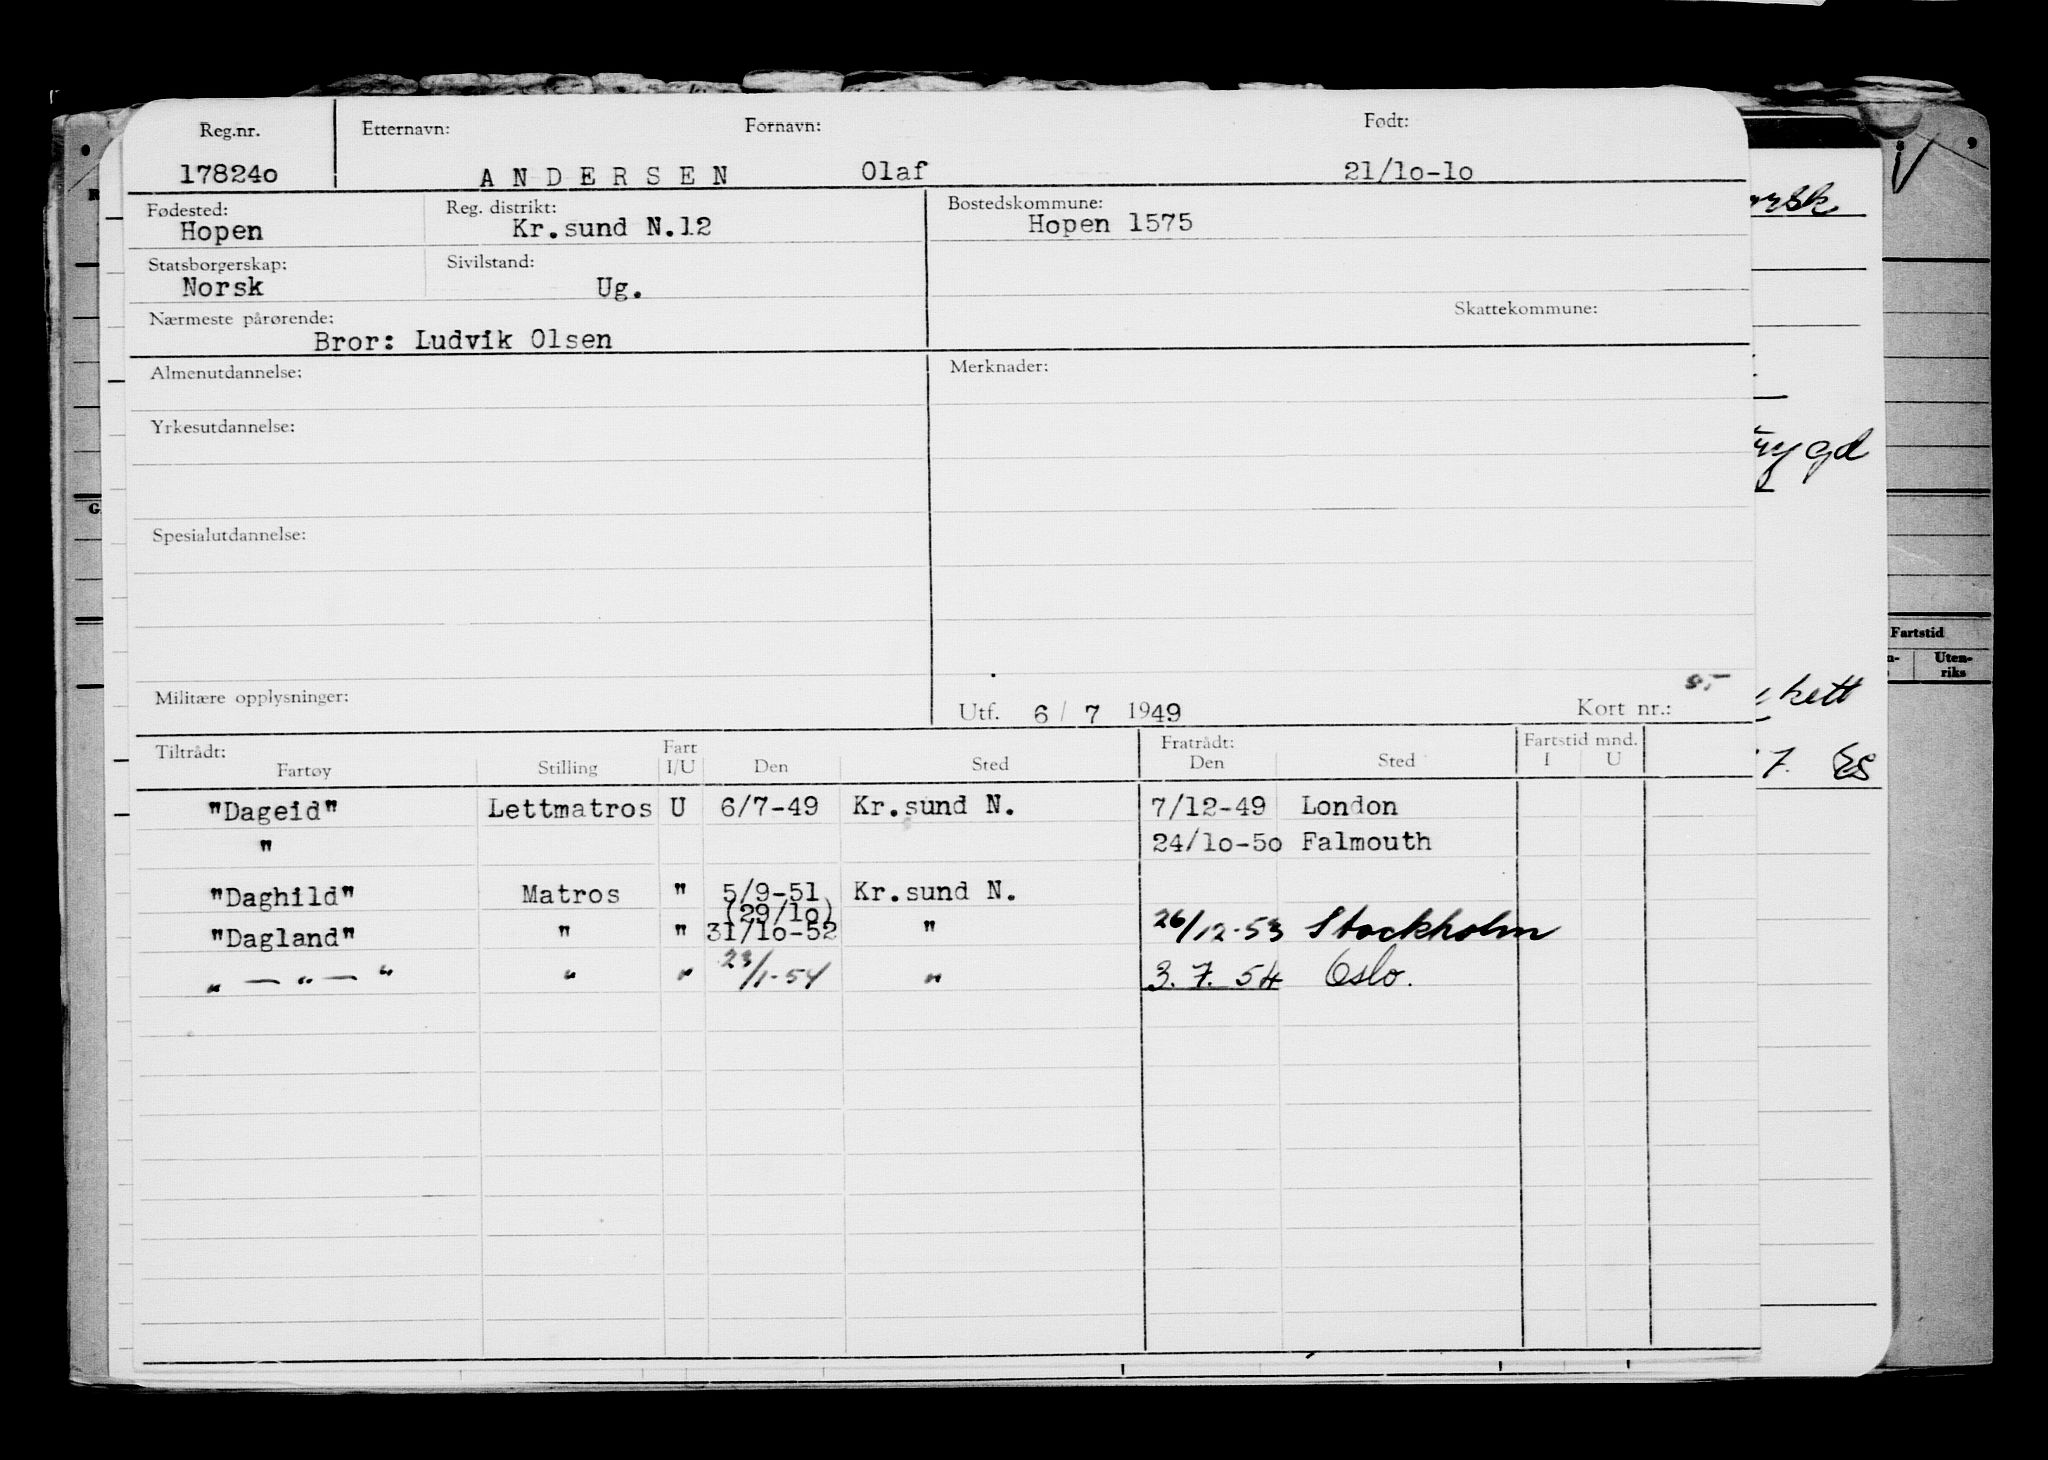 Reg.nr. Etternavn: Fornavn: Født:
17824o A N D E R S E N Olaf 21/lo-lo
Fødested: Reg. distrikt: Bostedskommune:
Hopen Kr.sund N.12 Hopen 1575
Statsborgerskap: Sivilstand:
Norsk Ug.
Nærmeste pårørende: Skattekommune:
Bror: Ludvik Olsen
Almenutdannelse: Merknader:
Yrkesutdannelse:
Spesialutdannelse:
Militære opplysninger: Utf. 6 / 7 1949 Kort nr.:
Tiltrådt: Fart Fratrådt: Fartstid mnd.
Fartøy Stilling I/U Den Sted Den Sted I U
"Dageid" Lettmatros U 6/7-49 Kr.sund N. 7/12-49 London
" 24/lo-5o Falmouth
"Daghild" Matros " 5/9-51 Kr.sund N.
(29/lo)
"Dagland" " " 31/lo-52 " 26/12-53 Stockholm
" — " — " " " 23/1-54 " 3.7.54 Oslo.
Fartstid
Uten-
riks